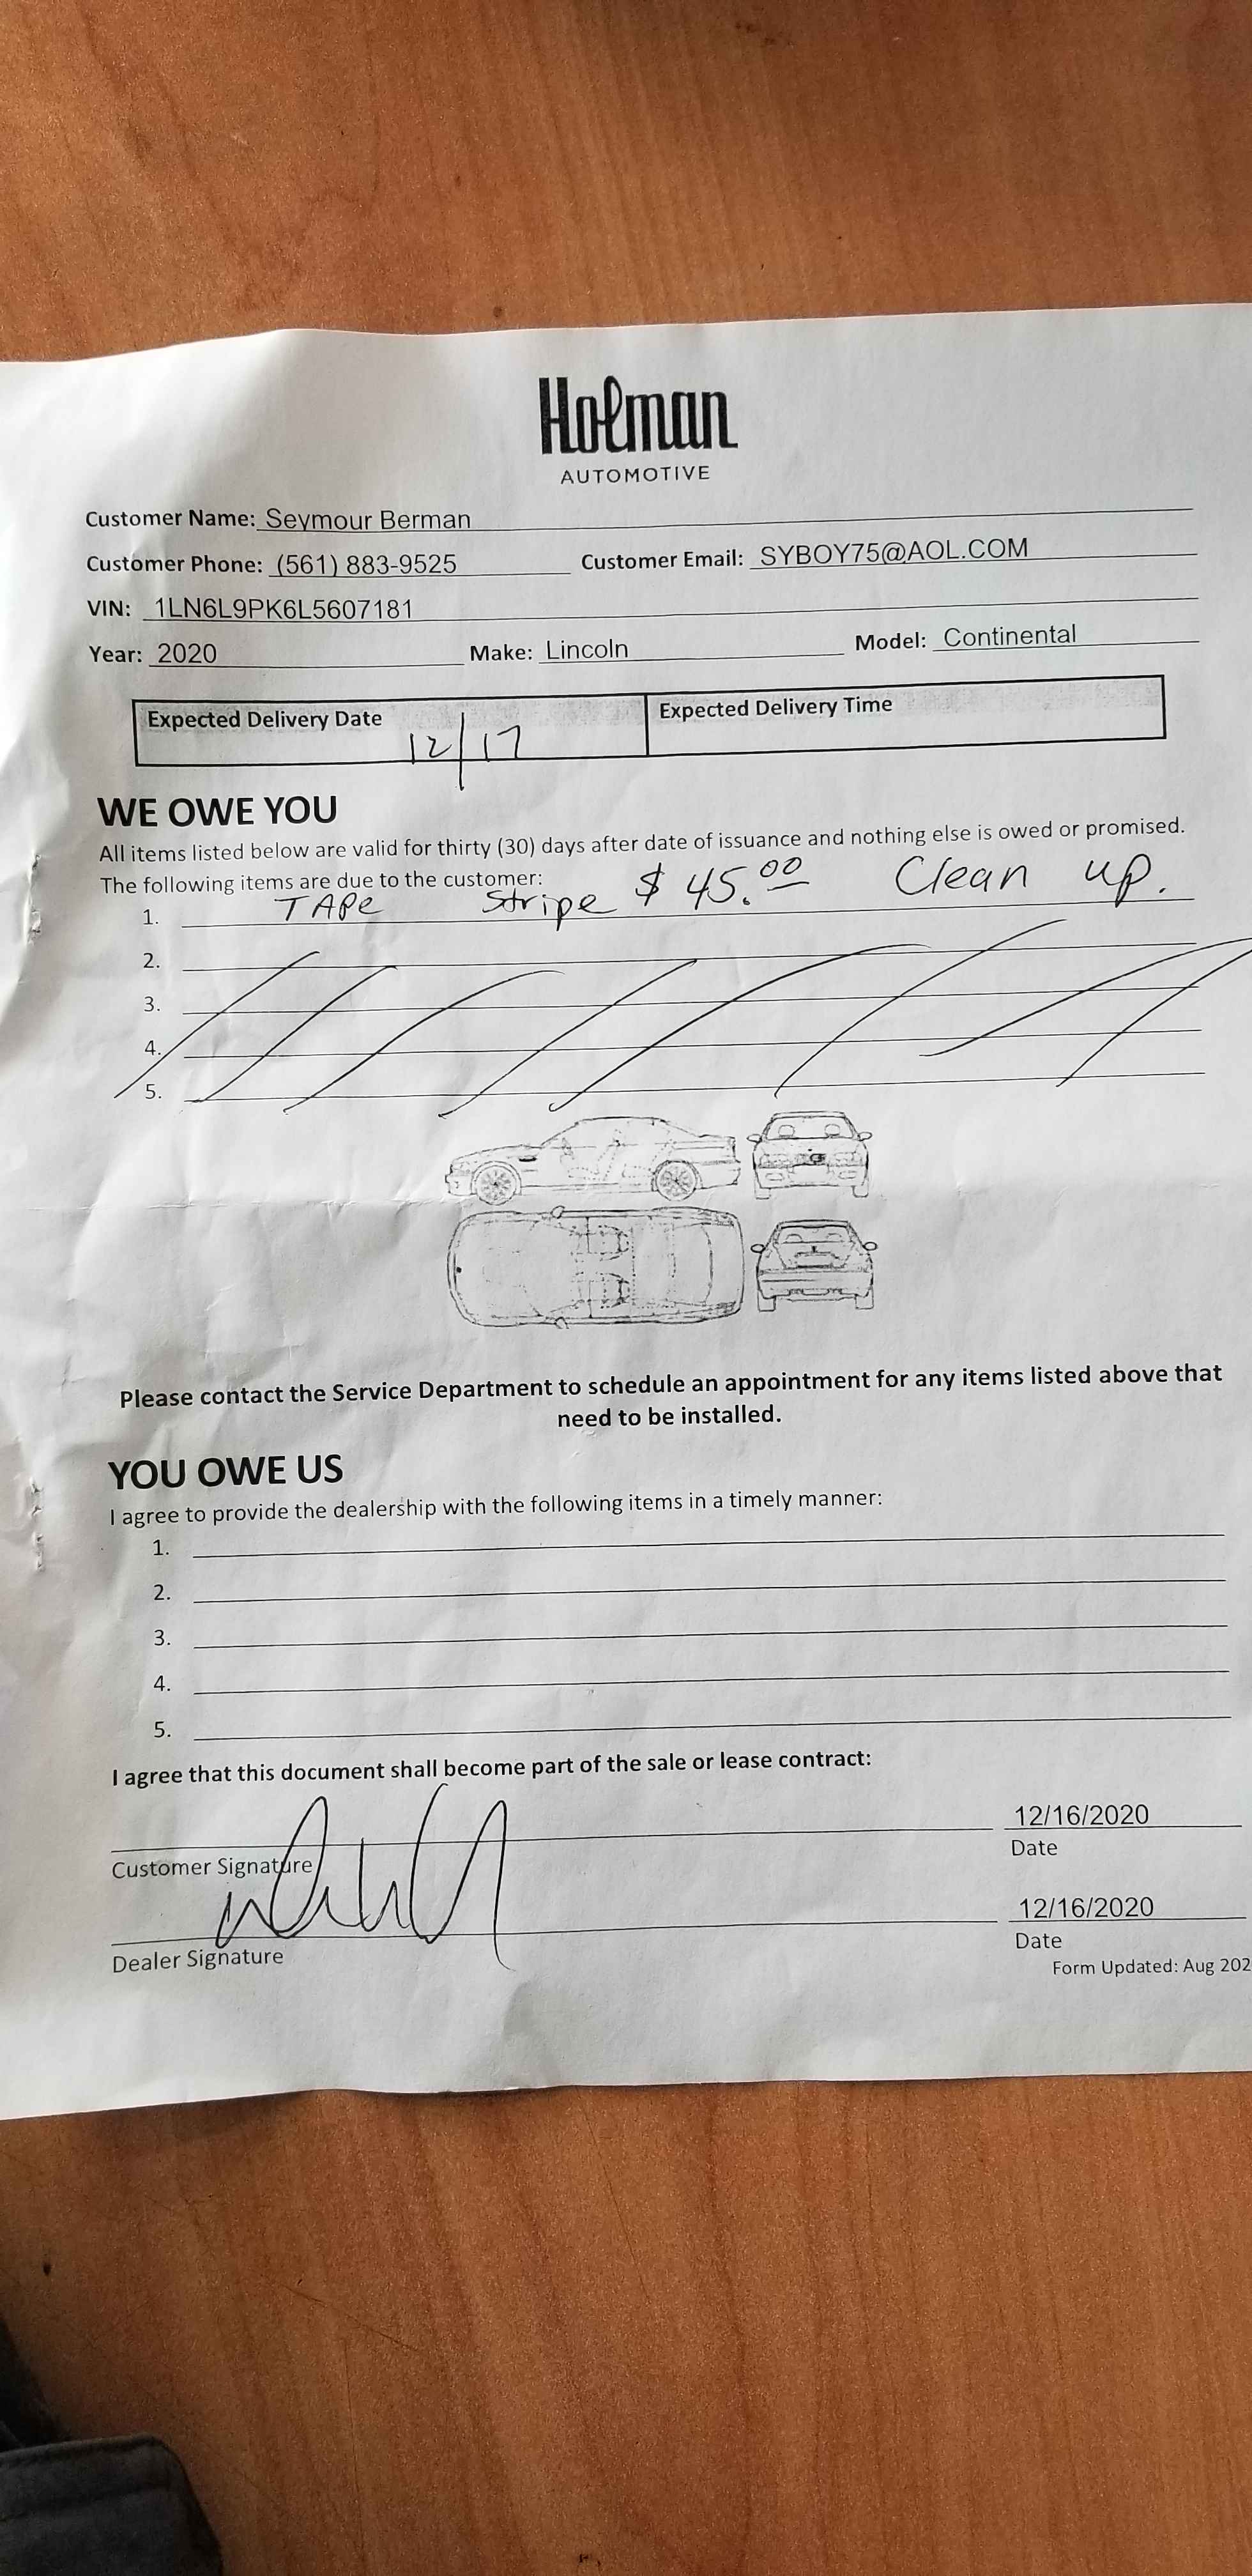 Holman
AUTOMOTIVE
Customer Name: Seymour Berman
Customer Phone: (561) 883-9525 Customer Email: SYBOY75@AOL.COM
VIN: 1LN6L9PK6L5607181
Year: 2020 Make: Lincoln Model: Continental
Expected Delivery Date 12/17 Expected Delivery Time
WE OWE YOU
All items listed below are valid for thirty (30) days after date of issuance and nothing else is owed or promised.
The following items are due to the customer:
1. TAPe Stripe $45.00 Clean up.
2.
3.
4.
5.
Please contact the Service Department to schedule an appointment for any items listed above that
need to be installed.
YOU OWE US
I agree to provide the dealership with the following items in a timely manner:
1.
2.
3.
4.
5.
I agree that this document shall become part of the sale or lease contract:
12/16/2020
Customer Signature Date
12/16/2020
Dealer Signature Date
Form Updated: Aug 202